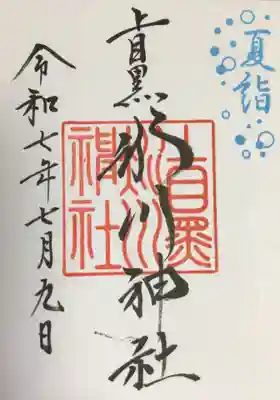 夏詣
上目黒氷川神社
上目黒氷川神社
令和七年七月九日